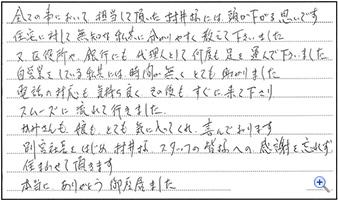 全ての事において、担当して頂いた村井様には、頭が下がる思いです
住宅に対して無知な私共に分かりやすく教えて下さいました
又、区役所や、銀行にも代理人として何度も足を運んで下さいました
自営業をしている私共には、時間が無く とても助かりました
電話の対応も気持ち良く、その後も、すぐに来て下さり
スムーズに流れて行きました。
も娘も、とても気に入ってくれ、喜んでおります
社長をはじめ、村井様、スタッフの皆様への感謝を忘れず
住まわせて頂きます
本当に ありがとう御座居ました